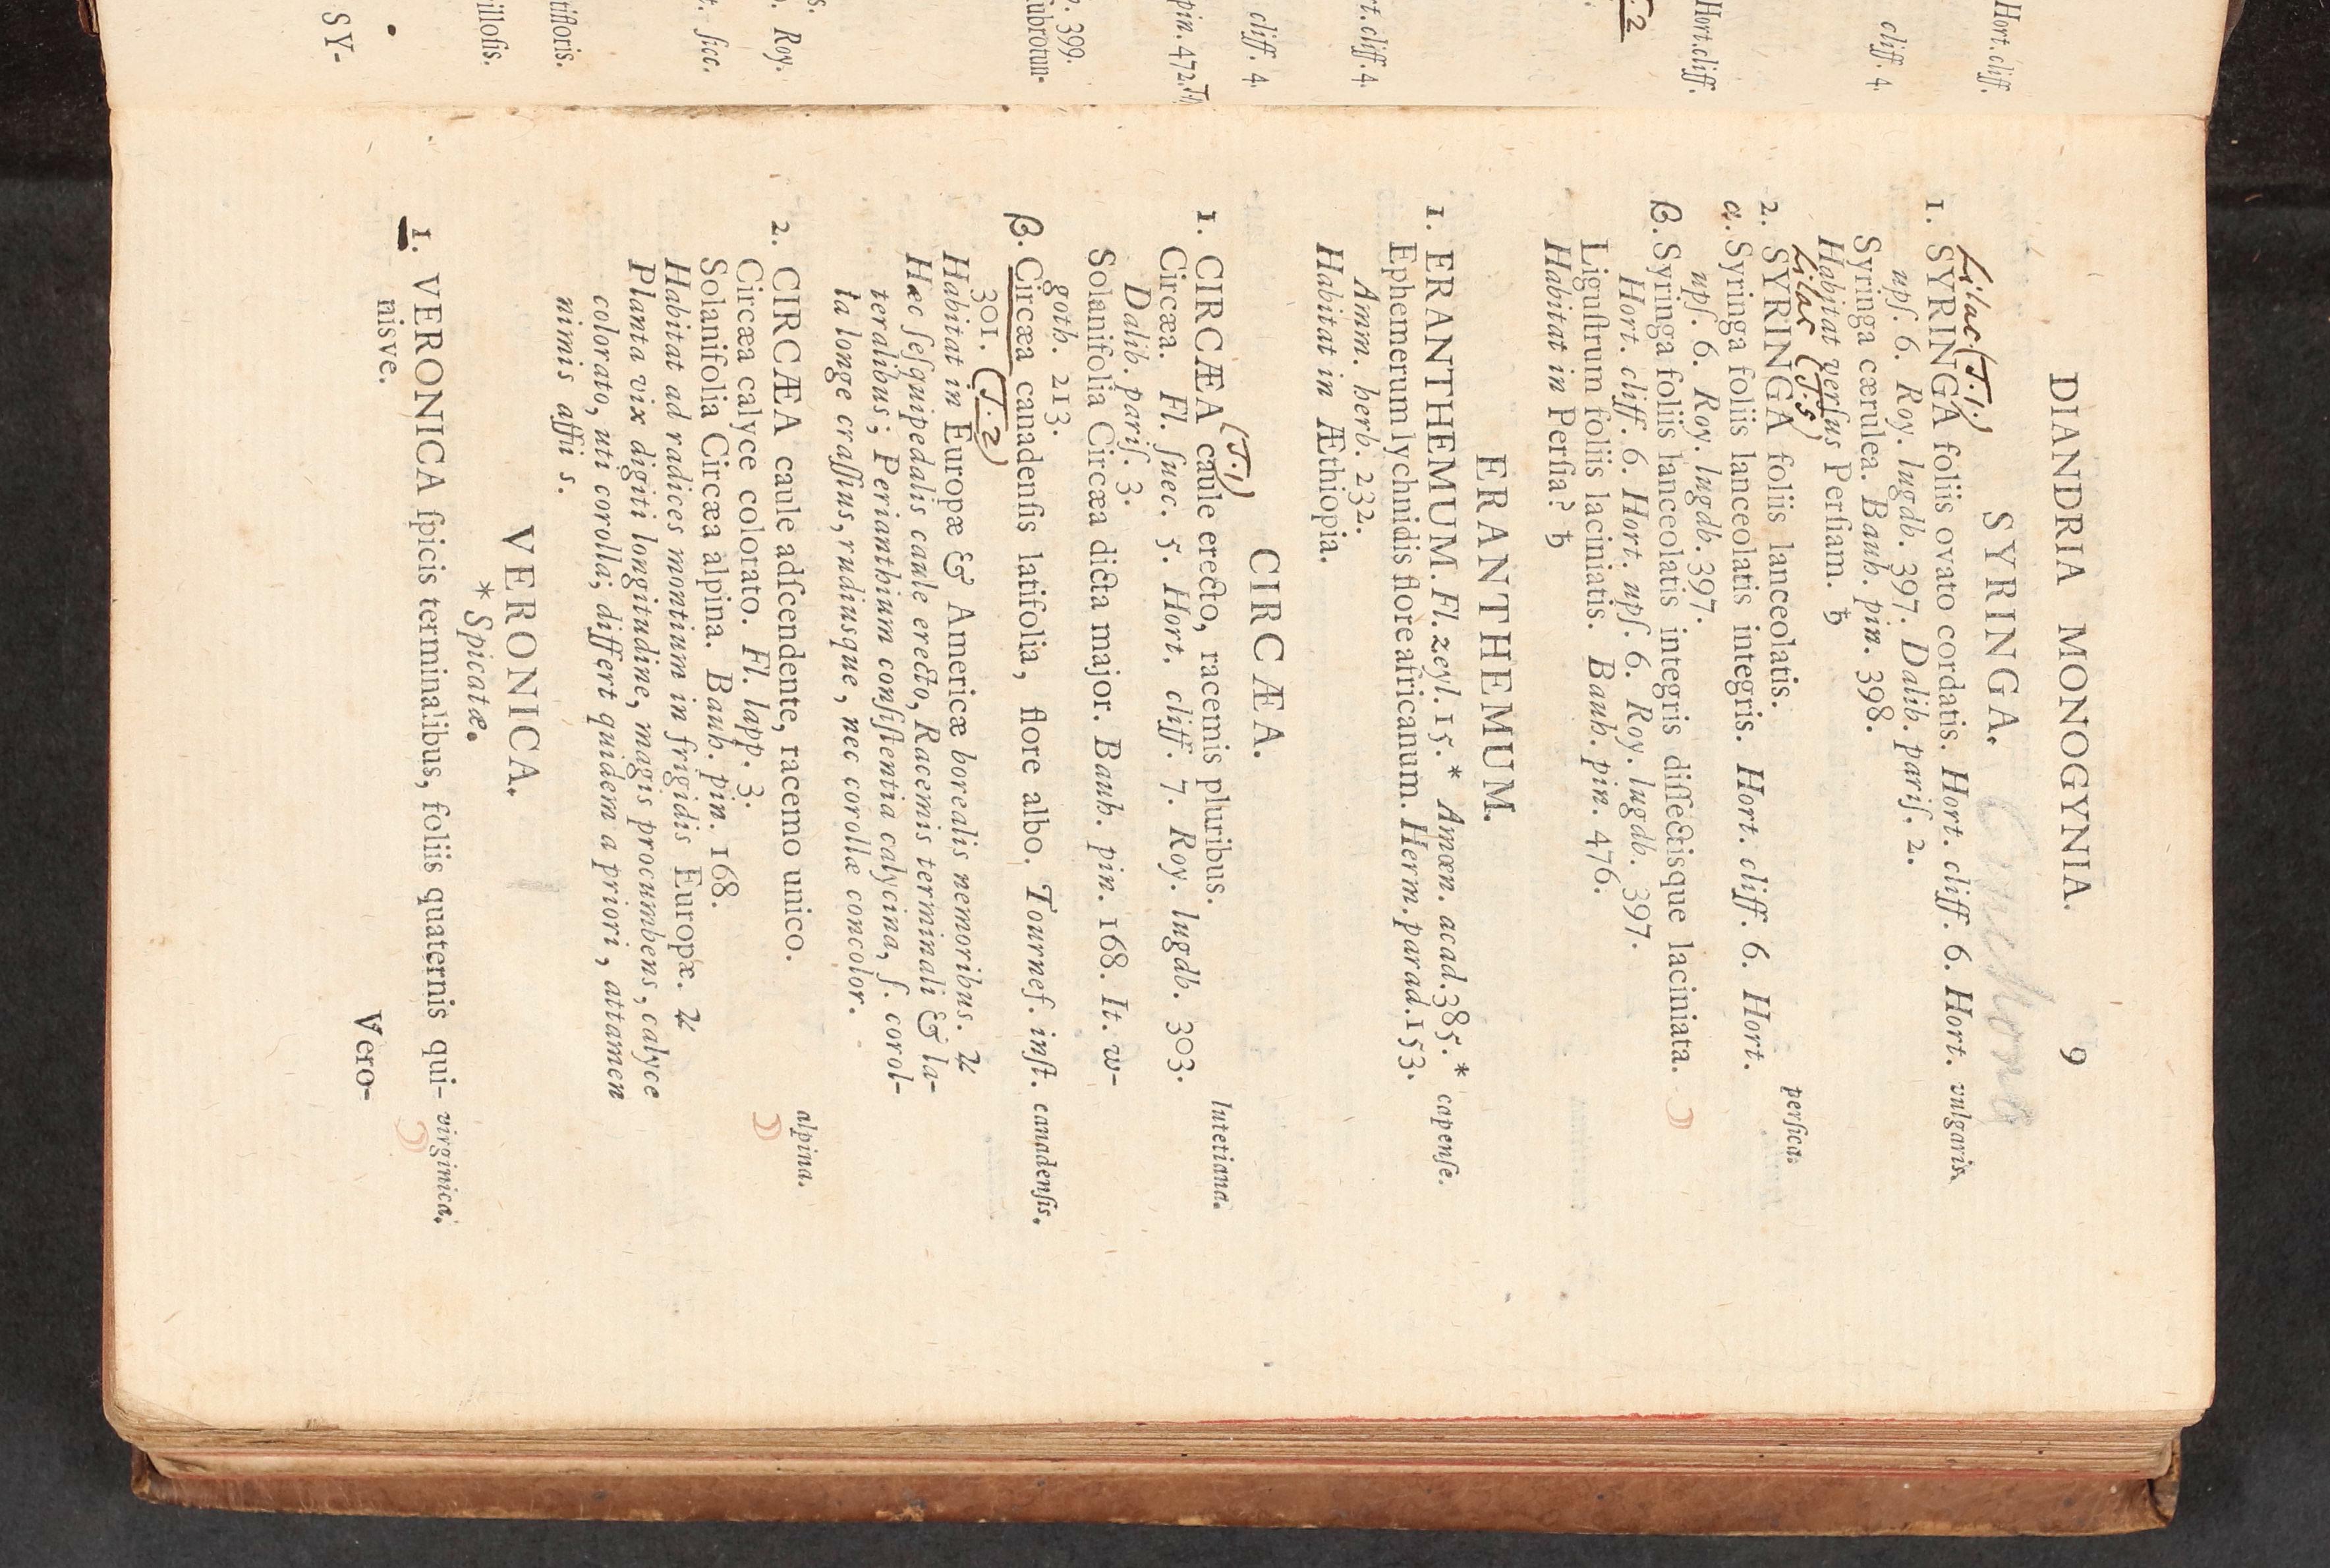 Hort. cliff.
cliff. 4.
Hort. cliff.
rt. cliff. 4.
cliff. 4.
pin. 472.
399.
ubrotun-
Roy.
ſicc.
tifloris.
illoſis.
SY-
DIANDRIA MONOGYNIA. 9
SYRINGA.
Lilac (T.1.)
1. SYRINGA foliis ovato cordatis. Hort. cliff. 6. Hort. vulgaris.
upſ. 6. Roy. lugdb. 397. Dalib. pariſ. 2.
Syringa cærulea. Bauh. pin. 398.
Habitat verſus Perſiam. ♄
Lilac (T.5)
2. SYRINGA foliis lanceolatis. perſica.
α. Syringa foliis lanceolatis integris. Hort. cliff. 6. Hort.
upſ. 6. Roy. lugdb. 397.
β. Syringa foliis lanceolatis integris diſſectisque laciniata.
Hort. cliff. 6. Hort. upſ. 6. Roy. lugdb. 397.
Liguſtrum foliis laciniatis. Bauh. pin. 476.
Habitat in Perſia? ♄
ERANTHEMUM.
1. ERANTHEMUM. Fl. zeyl. 15. * Amœn. acad. 385. * capenſe.
Ephemerum lychnidis flore africanum. Herm. parad. 153.
Amm. herb. 232.
Habitat in Æthiopia.
CIRCÆA.
(T.1)
1. CIRCÆA caule erecto, racemis pluribus. lutetiana.
Circæa. Fl. ſuec. 5. Hort. cliff. 7. Roy. lugdb. 303.
Dalib. pariſ. 3.
Solanifolia Circæa dicta major. Bauh. pin. 168. It. w-
goth. 213.
β. Circæa canadenſis latifolia, flore albo. Tournef. inſt. canadenſis.
301. (T.2)
Habitat in Europæ & Americæ borealis nemoribus. ♃
Hæc ſeſquipedalis caule erecto, Racemis terminali & la-
teralibus; Perianthium conſiſtentia calycina, ſ. corol-
la longe craſſius, rudiusque, nec corollæ concolor.
2. CIRCÆA caule adſcendente, racemo unico. alpina.
Circæa calyce colorato. Fl. lapp. 3.
Solanifolia Circæa alpina. Bauh. pin. 168.
Habitat ad radices montium in frigidis Europæ. ♃
Planta vix digiti longitudine, magis procumbens, calyce
colorato, uti corolla; differt quidem a priori, attamen
nimis affii s.
VERONICA.
* Spicatæ.
1. VERONICA ſpicis terminalibus, foliis quaternis qui- virginica.
nisve.
Vero-